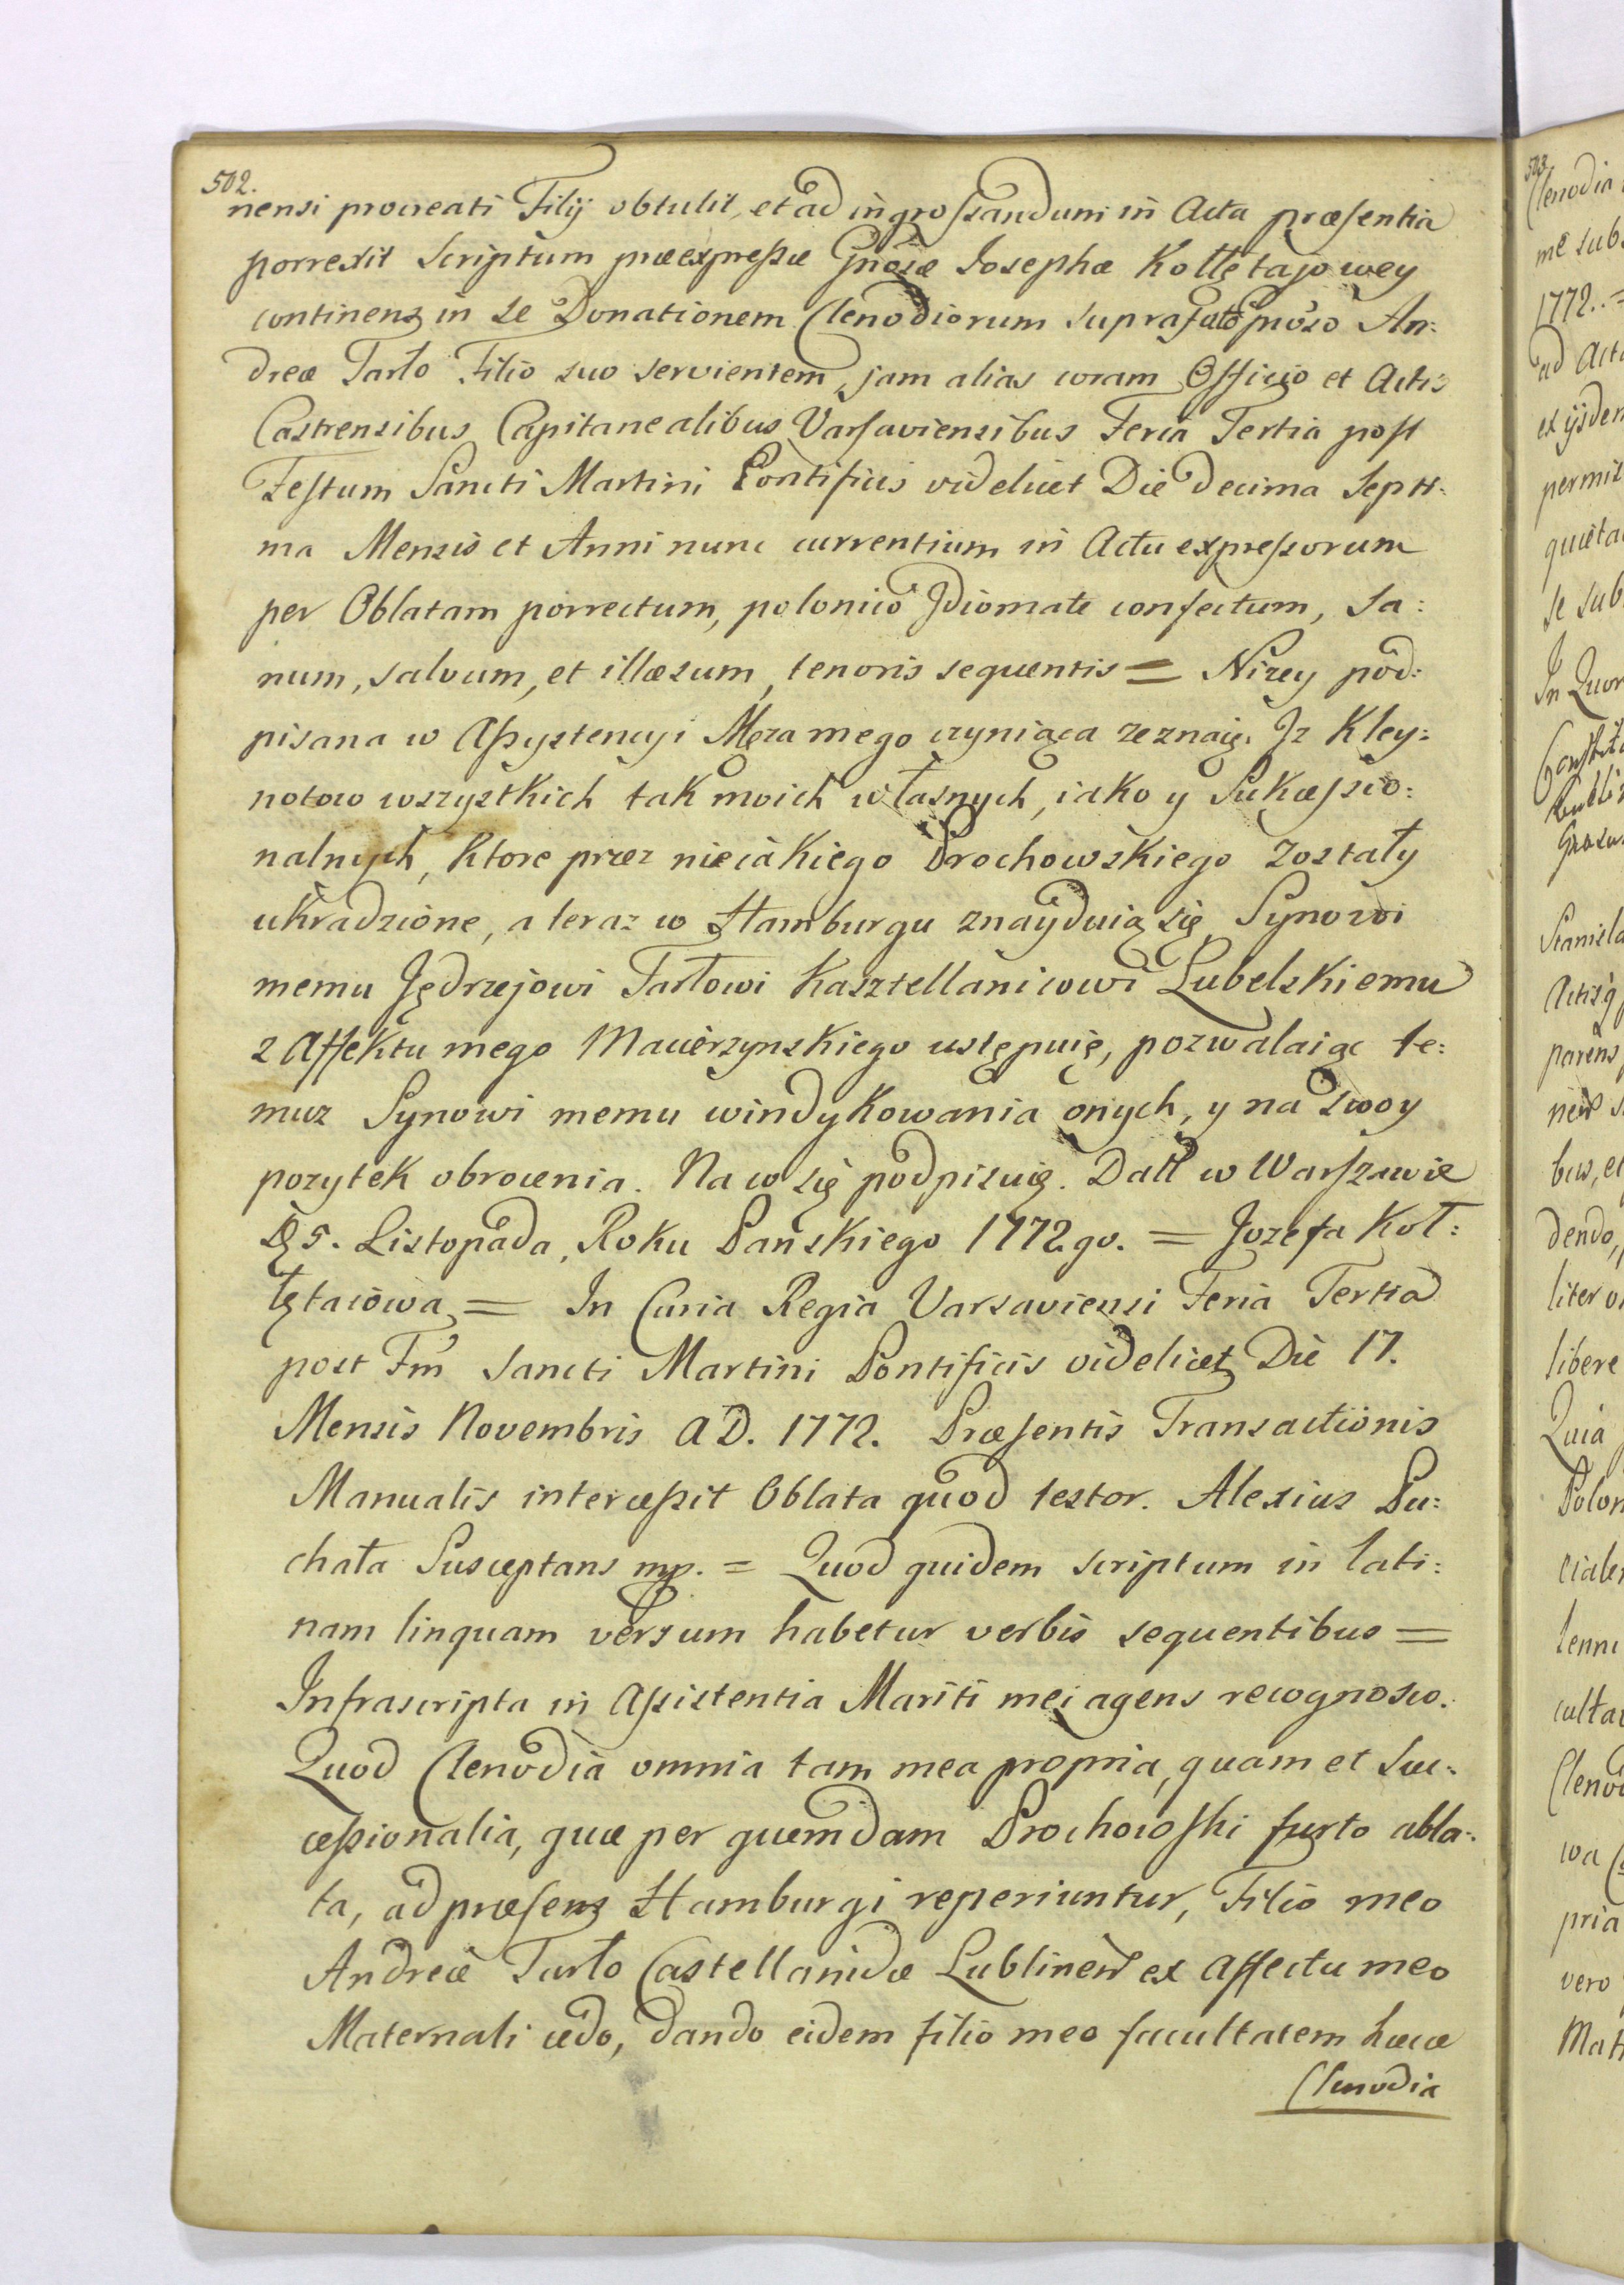 502.
nensi procreati Filij obtulit, et ad ingroſsandum in Acta præſentia
porrexit Scriptum præexpreſsæ Gnosæ Josephæ Kołłętajowey
continens in se Donationem Clenodiorum suprafato Gnoso An:
dreæ Tarło Filio suo servientem, jam alias coram Officio et Actis
Castrensibus Capitanealibus Varſaviensibus Feria Tertia poſt
Feſtum Sancti Martini Pontificis videlicet Die decima Septi:
ma Mensis et Anni nunc currentium in Actu expreſsorum
per Oblatam porrectum, polonico Jdiomate confectum, Sa:
num, salvum, et illæsum, tenoris sequentis = Nizey pod:
pisana w Aſsystencyi Męza mego czyniąca zeznaię. Jz Kley:
notow wszystkich tak moich własnych, iako y Sukceſsio:
nalnych, Ktore przez nieiakiego Prochowskiego zostały
ukradzione, a teraz w Hamburgu znayduią się, Synowi
memu Jędrzejowi Tarłowi Kasztellanicowi Lubelskiemu
z Affektu mego Macierzynskiego ustępuię, pozwalaiąc te:
muz Synowi memu windykowania onych, y na swoy
pozytek obrocenia. Na co się podpisuię. Datt w Warſzawie
D. 5. Listopada, Roku Panskiego 1772.go. = Jozefa Koł:
łętaiowa = In Curia Regia Varsaviensi Feria Tertia
post Fm Sancti Martini Pontificis videlicet Die 17.
Mensis Novembris AD. 1772. Præſentis Transactionis
Manualis interceſsit Oblata quod testor. Alexius Pu:
chała Susceptans mp. = Quod quidem scriptum in lati:
nam linguam versum habetur verbis sequentibus =
Infrascripta in Aſsistentia Mariti mei agens recognosco.
Quod Clenodia omnia tam mea propria, quam et Suc:
ceſsionalia, quæ per quemdam Prochowſki furto abla:
ta, ad præſens Hamburgi reperiuntur, Filio meo
Andreæ Tarło Castellanidæ Lublinen ex Affectu meo
Maternali cedo, dando eidem filio meo facultatem hæcce
Clenodia
503.
Clenodia
me sub
1772. =
ad Acta
ex ijsdem
permis
quieta
se sub
In Quor
Stanisla
Actisq
parens
nen s
bus, et
dendo,
liter
libere
Quia
Polon
lenni
Clenod
wa
pria
vero
Mat